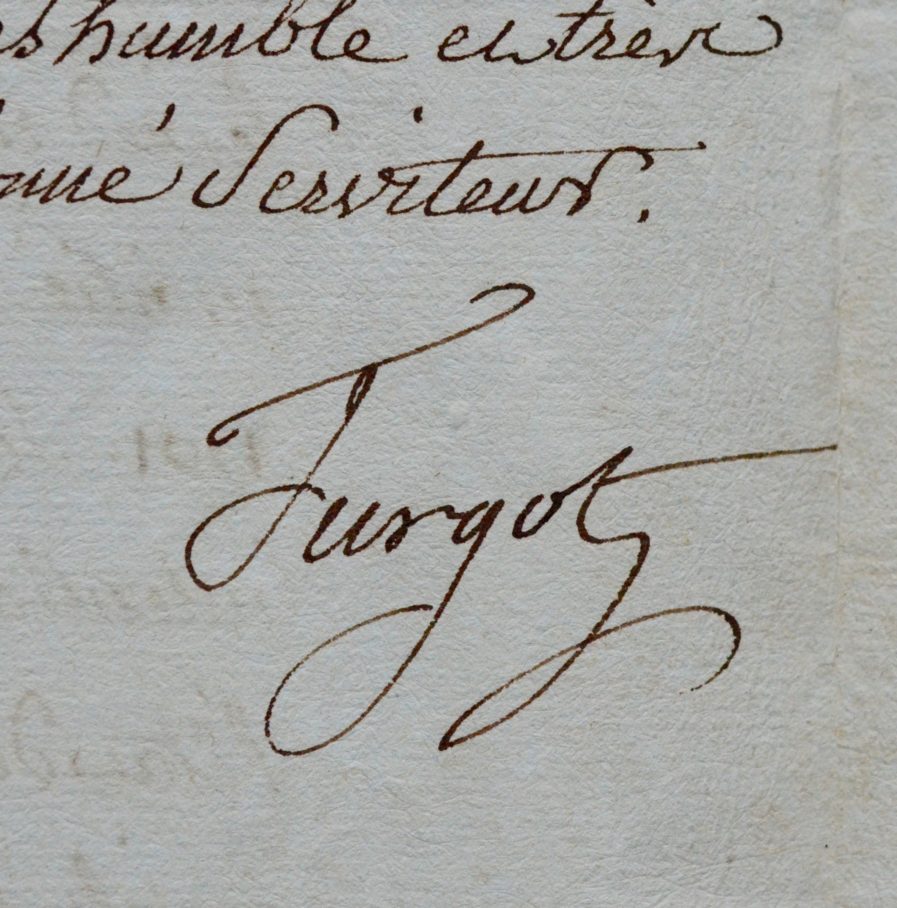 humble et très
Serviteur.
Turgot